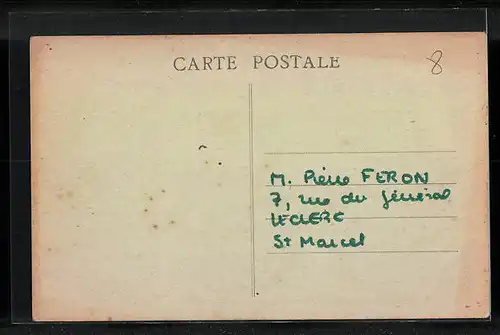 CARTE POSTALE
8
M. Pierre FERON
7, rue du général
LECLERC
St Marcel